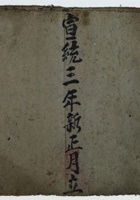 宣統三年新正月立